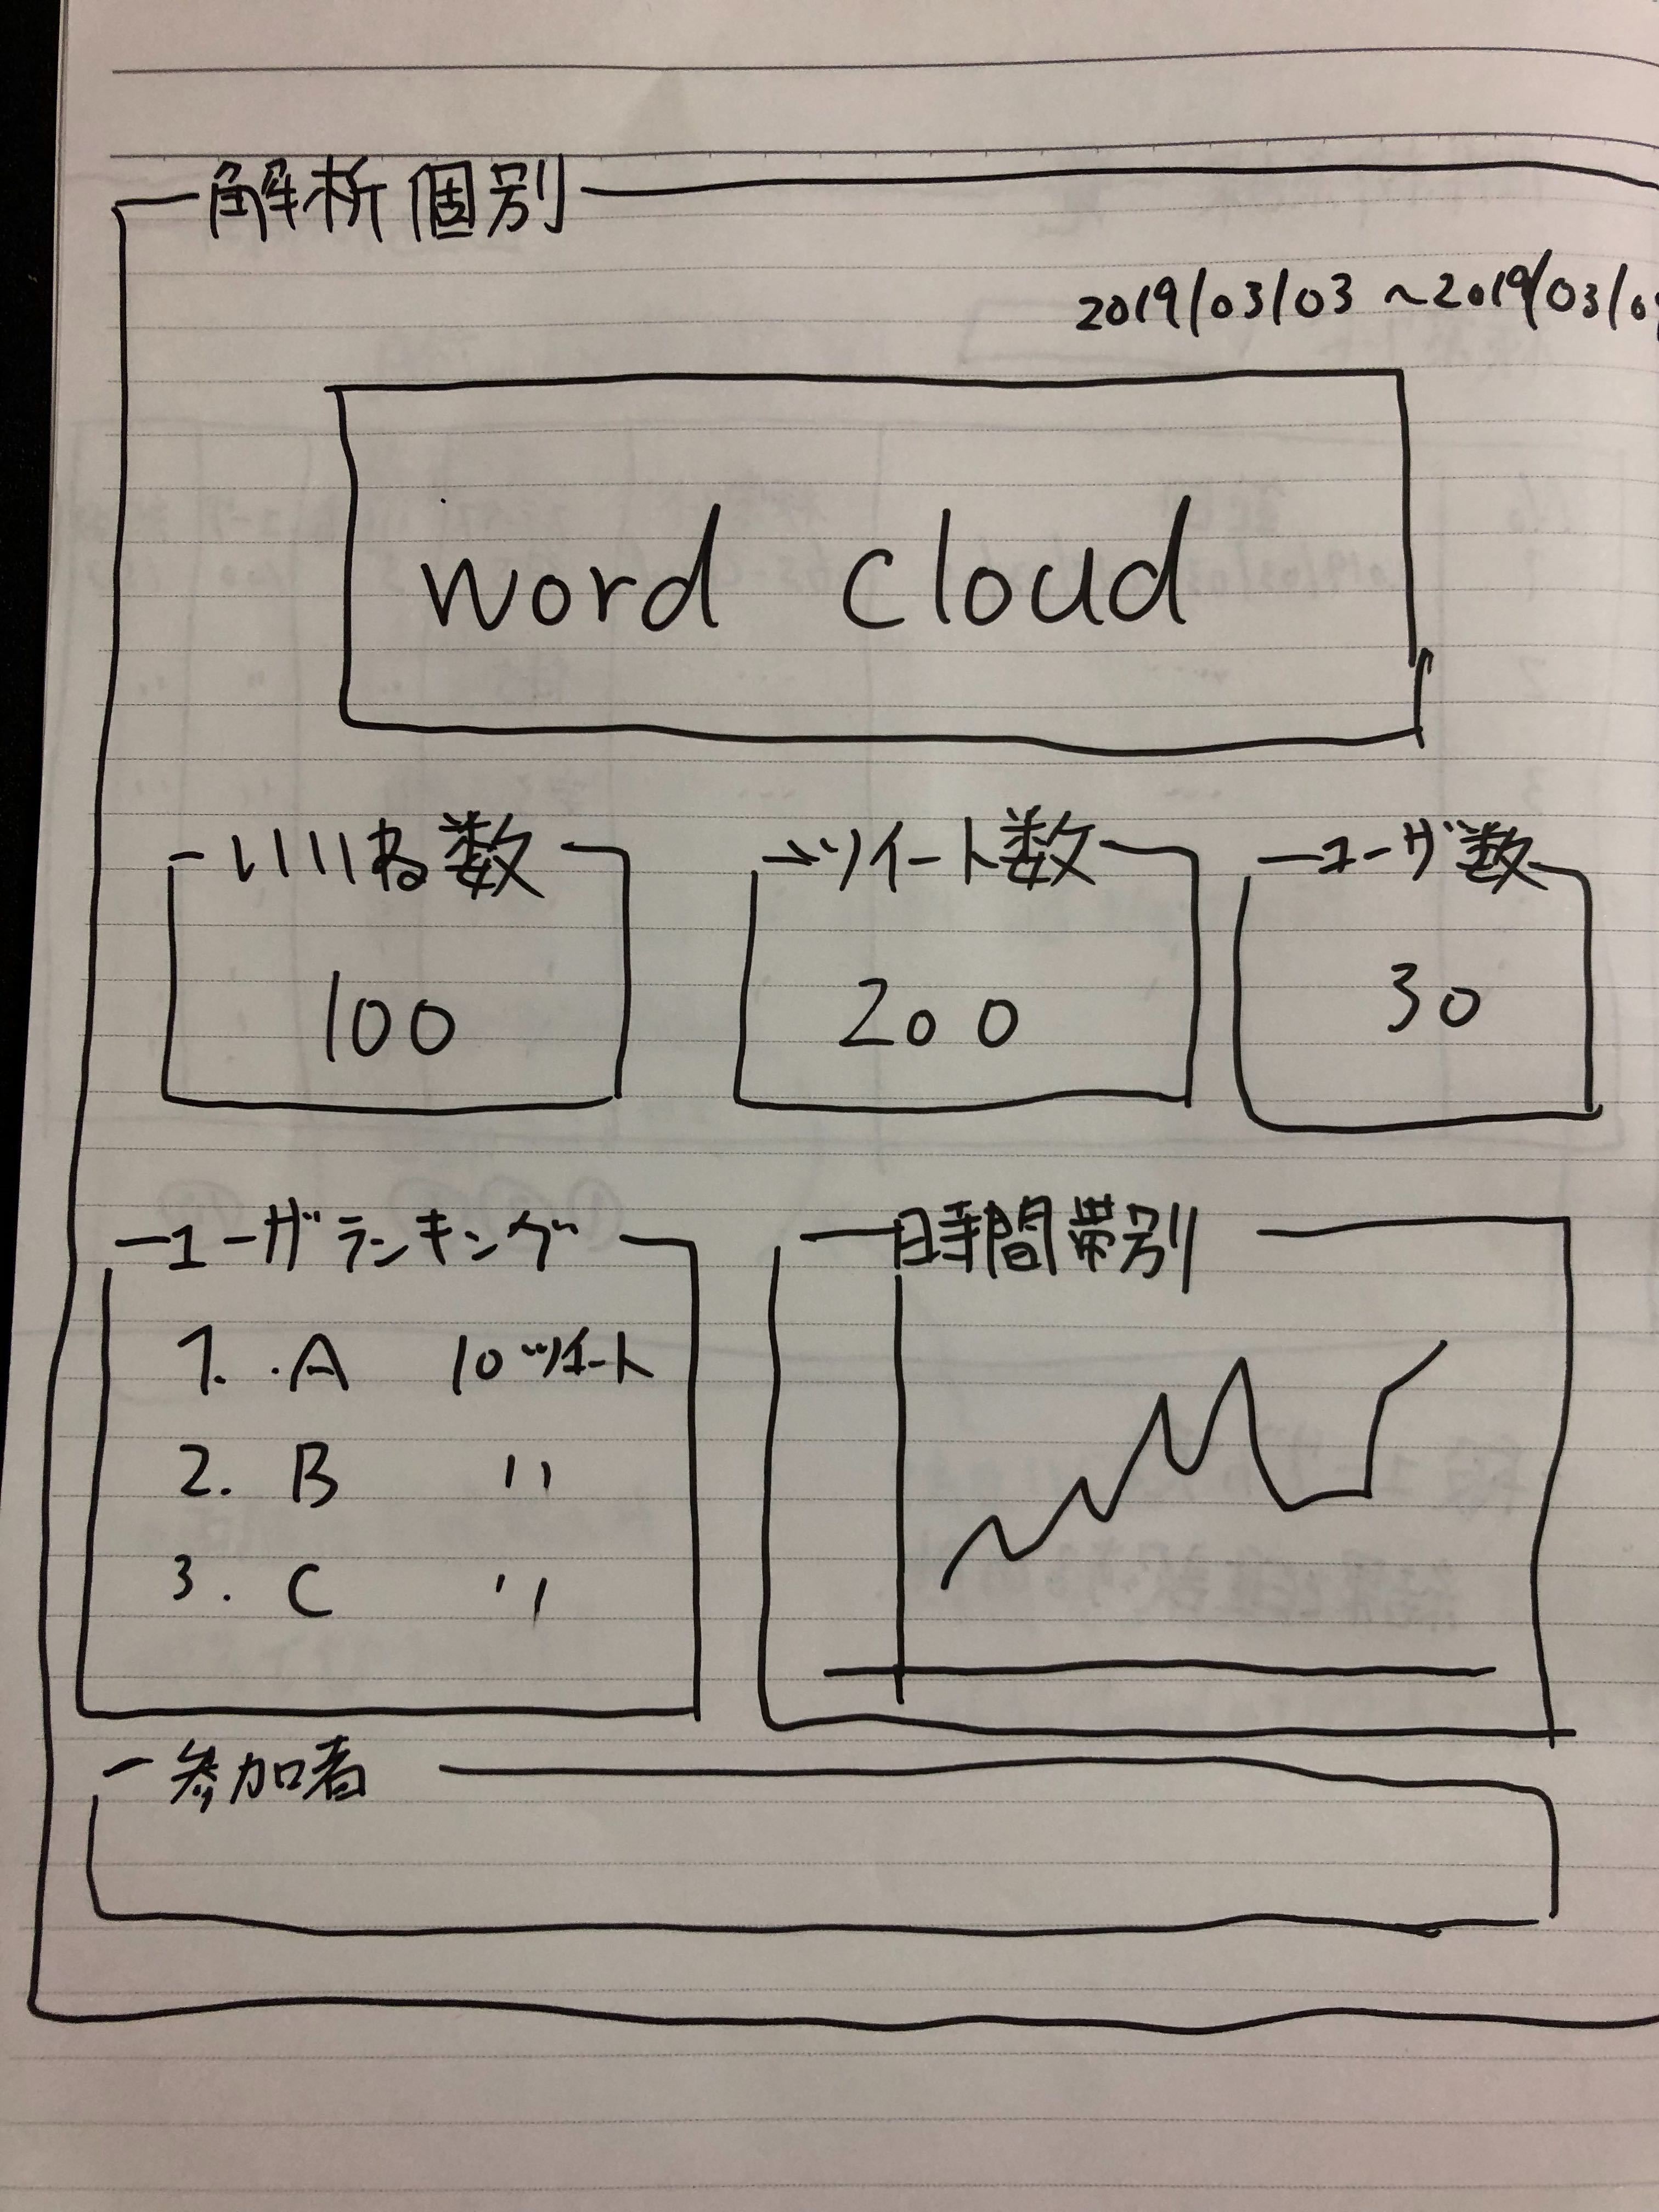 解析個別
2019/03/03 ~2019/03/0
word cloud
いいね数
ツイート数
ユーザ数
100
200
30
ユーザランキング
1. A 10ツイート
2. B 〃
3. C 〃
時間帯別
参加者